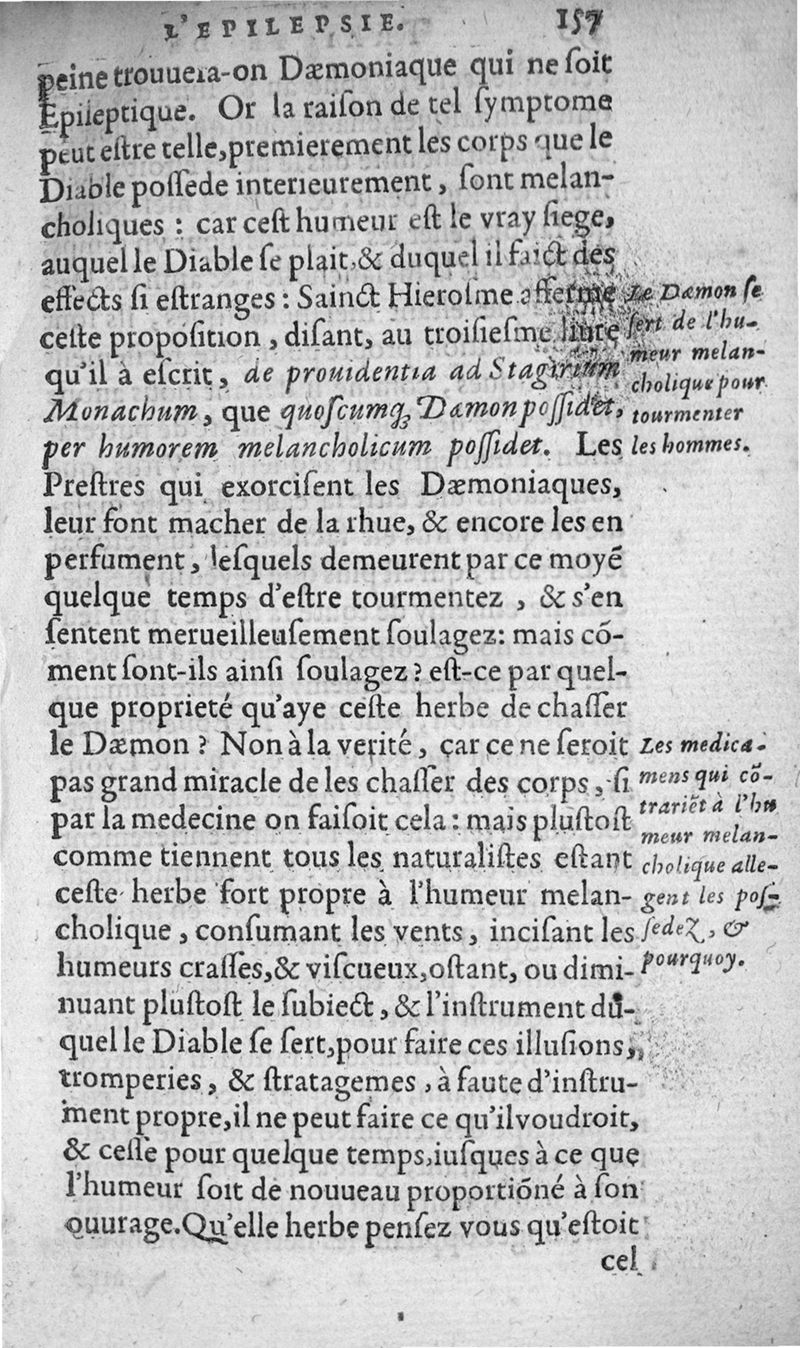 L'EPILEPSIE. 157
peine trouuera-on Dæmoniaque qui ne ſoit
Epileptique. Or la raiſon de tel ſymptome
peut eſtre telle, premierement les corps que le
Diable poſſede interieurement, ſont melan-
choliques : car ceſt humeur eſt le vray ſiege,
auquel le Diable ſe plait, & duquel il faict des
effects ſi eſtranges : Sainct Hieroſme afferme
ceſte propoſition, diſant, au troiſieſme liure
qu'il à eſcrit, de prouidentia ad Stagirium
Monachum, que quoſcumq; Dæmon poſſidet,
per humorem melancholicum poſſidet. Les
Preſtres qui exorciſent les Dæmoniaques,
leur font macher de la rhue, & encore les en
perfument, leſquels demeurent par ce moyẽ
quelque temps d'eſtre tourmentez, & s'en
ſentent merueilleuſement ſoulagez: mais cõ-
ment ſont-ils ainſi ſoulagez ? eſt-ce par quel-
que proprieté qu'aye ceſte herbe de chaſſer
le Dæmon ? Non à la verité, car ce ne ſeroit
pas grand miracle de les chaſſer des corps, ſi
par la medecine on faiſoit cela : mais pluſtoſt
comme tiennent tous les naturaliſtes eſtant
ceſte herbe fort propre à l'humeur melan-
cholique, conſumant les vents, inciſant les
humeurs craſſes, & viſcueux, oſtant, ou dimi-
nuant pluſtoſt le ſubiect, & l'inſtrument du-
quel le Diable ſe ſert, pour faire ces illuſions,
tromperies, & ſtratagemes, à faute d'inſtru-
ment propre, il ne peut faire ce qu'il voudroit,
& ceſſe pour quelque temps, iuſques à ce que
l'humeur ſoit de nouueau proportiõné à ſon
ouurage. Qu'elle herbe penſez vous qu'eſtoit
cel
Le Dæmon ſe
ſert de l'hu-
meur melan-
cholique pour
tourmenter
les hommes.
Les medica-
mens qui cõ-
trariẽt à l'hu
meur melan-
cholique alle-
gent les poſ-
ſedez, &
pourquoy.